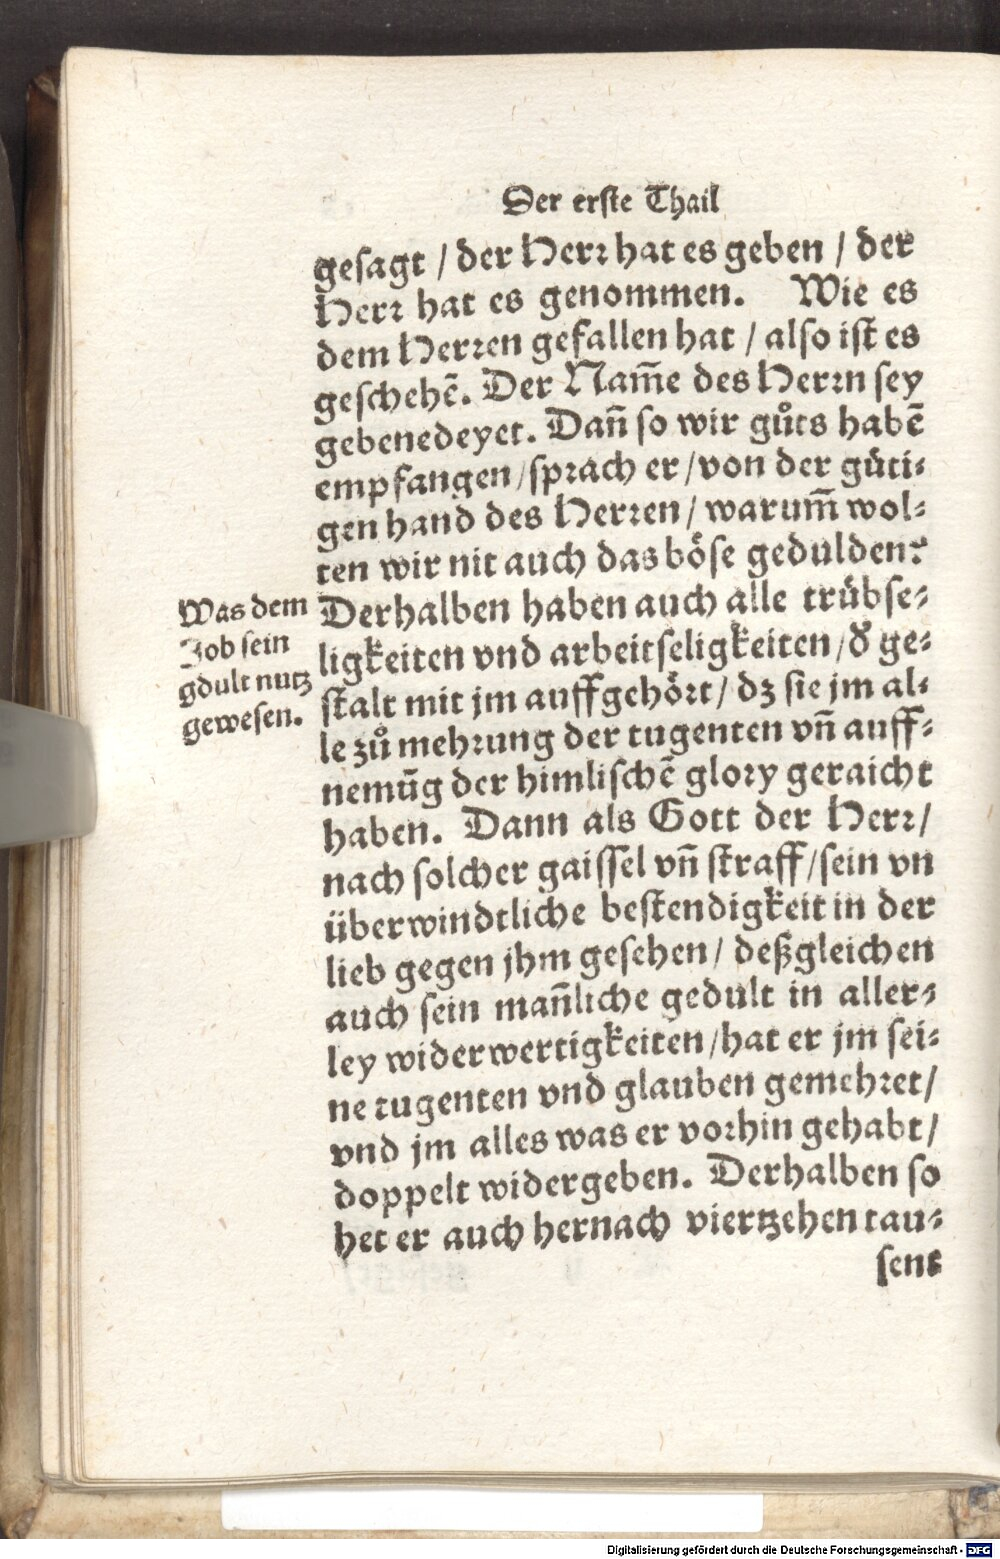 Der erste Thail
gesagt / der Herr hat es geben / der
Herr hat es genommen. Wie es
dem Herren gefallen hat / also ist es
geschehẽ. Der Nam̃e des Herrn sey
gebenedeyet. Dañ so wir gůts habẽ
empfangen / sprach er / von der güti⸗
gen hand des Herren / warum̃ wol⸗
ten wir nit auch das böse gedulden?
Was dem
Job sein
gdult nutz
gewesen.
Derhalben haben auch alle trübse⸗
ligkeiten vnd arbeitseligkeiten / d̕ ge⸗
stalt mit jm auffgehört / dz sie jm al⸗
le zů mehrung der tugenten vñ auff⸗
nemũg der himlischẽ glory geraicht
haben. Dann als Gott der Herr /
nach solcher gaissel vñ straff / sein vn
überwindtliche bestendigkeit in der
lieb gegen jhm gesehen / deßgleichen
auch sein mañliche gedult in aller⸗
ley widerwertigkeiten / hat er jm sei⸗
ne tugenten vnd glauben gemehret /
vnd jm alles was er vorhin gehabt /
doppelt widergeben. Derhalben so
het er auch hernach viertzehen tau⸗
sent
Digitalisierung gefördert durch die Deutsche Forschungsgemeinschaft - DFG